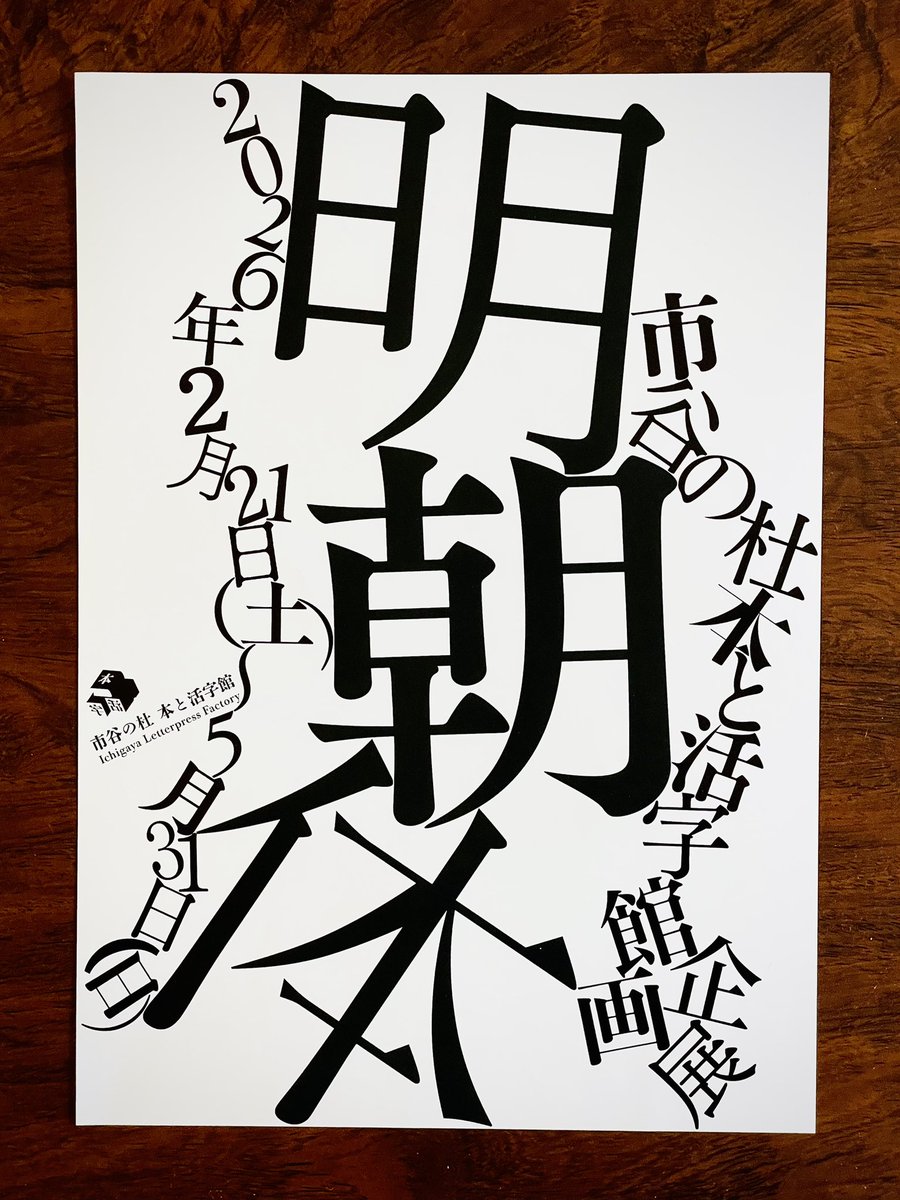 明朝体
市谷の杜 本と活字館企画展
2026年2月21日(土)〜5月31日(日)
本
市谷の杜 本と活字館
Ichigaya Letterpress Factory